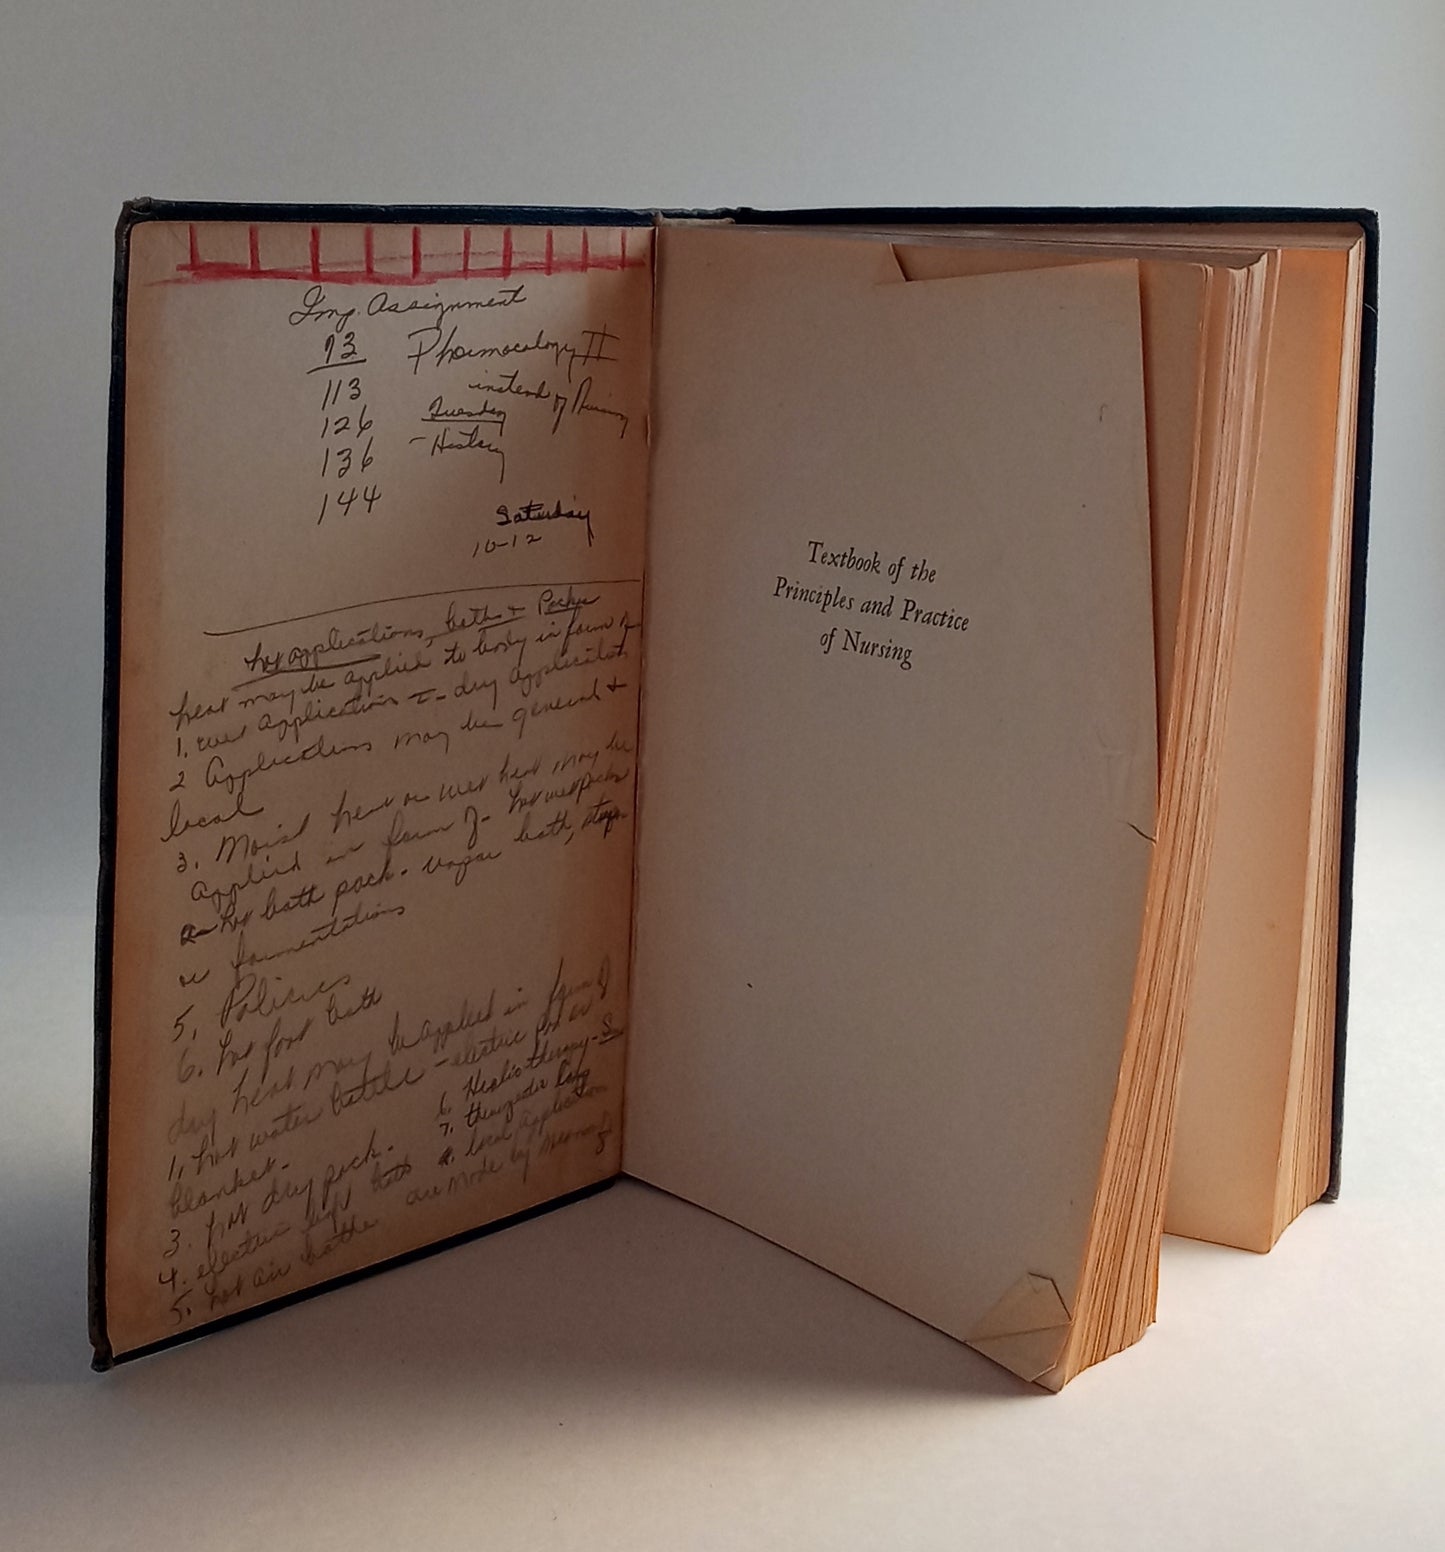 Imp. Assignment
93 Pharmacology II
113 instead of Nursing
126 Tuesday
136 - History
144
Saturday
10-12
hot applications, baths & Packs
heat may be applied to body in form of
1. wet application - dry application
2 Applications may be general &
local
3. Moist heat or wet heat may be
applied in form of - hot wet packs
hot bath pack - vapor bath, stupes
or fomentations
5.
6. hot foot bath
dry heat may be applied in form of
1. hot water bottle - electric pad or
blanket.
3. hot dry pack.
4. electric light bath
5. hot air bathe
6. Heliotherapy -
7. lamp
local application
are made by means of
Textbook of the
Principles and Practice
of Nursing